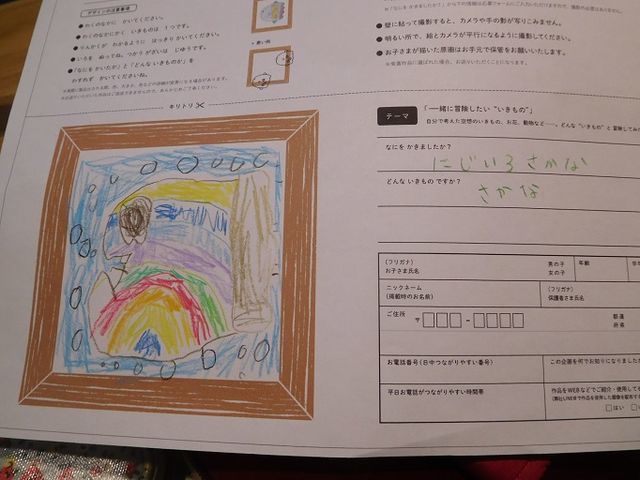 デザインの注意事項
● わくのなかに かいてください。
● わくのなかにかく いきものは 1つです。
● りんかくが わかるように はっきり かいてください。
● いろを ぬってね。つかう がざいは じゆうです。
● 「なにを かいたか」と「どんな いきものか」を
わすれず かいてくださいね。
● 悪い例
キリトリ
● 壁に貼って撮影すると、カメラや手の影が写りこみません。
● 明るい所で、絵とカメラが平行になるように撮影してください。
● お子さまが描いた原画はお手元で保管をお願いいたします。
テーマ
「一緒に冒険したい “いきもの”」
自分で考えた空想のいきもの、お花、動物など
なにを かきましたか?
にじいろさかな
どんな いきもの ですか?
さかな
(フリガナ)
お子さま氏名
男の子
女の子
年齢
ニックネーム
(掲載時のお名前)
(フリガナ)
保護者さま氏名
ご住所
〒
都道
府県
お電話番号(日中つながりやすい番号)
この企画を何でお知りになりました
平日お電話がつながりやすい時間帯
作品をWEBなどでご紹介・使用して
はい